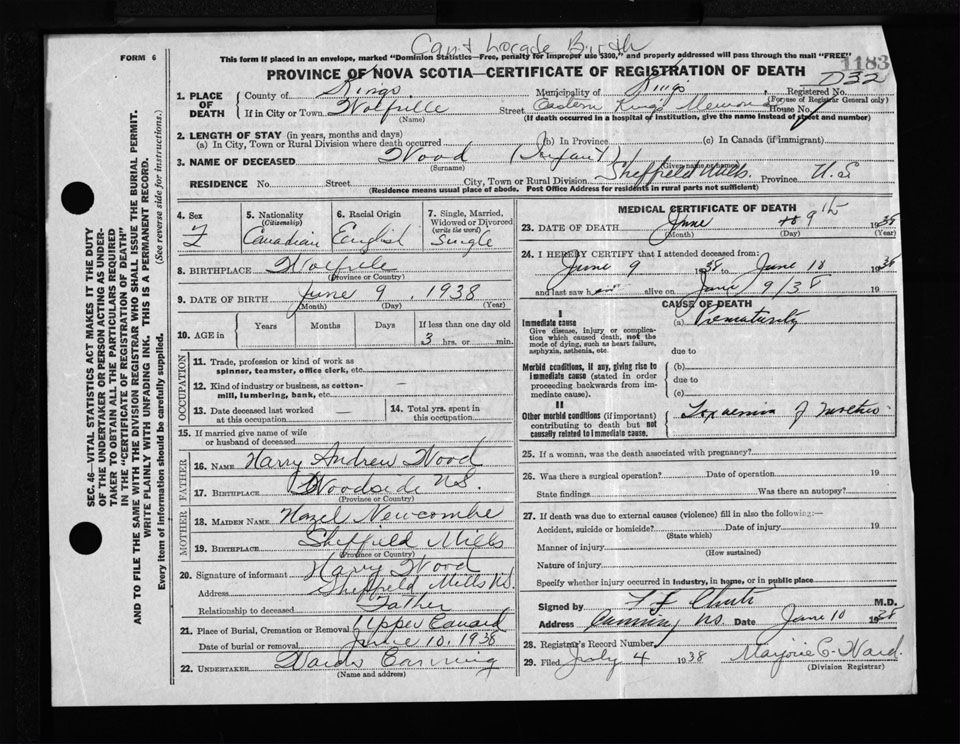 Can't locate Birth
FORM 6
This form if placed in an envelope, marked "Dominion Statistics—Free, penalty for improper use $300," and properly addressed will pass through the mail "FREE"
1183
PROVINCE OF NOVA SCOTIA—CERTIFICATE OF REGISTRATION OF DEATH
D32
1. PLACE OF DEATH
County of Kings Municipality of Kings Registered No.
(For use of Registrar General only)
If in City or Town Wolfville Street Eastern Kings Memorial House No.
(Name) (If death occurred in a hospital or institution, give the name instead of street and number)
2. LENGTH OF STAY (in years, months and days)
(a) In City, Town or Rural Division where death occurred (b) In Province (c) In Canada (if immigrant)
3. NAME OF DECEASED Wood (Infant)
(Surname) (Given name or names)
RESIDENCE No. Street City, Town or Rural Division Sheffield Mills Province N.S.
(Residence means usual place of abode. Post Office Address for residents in rural parts not sufficient)
4. Sex F
5. Nationality (Citizenship) Canadian
6. Racial Origin English
7. Single, Married, Widowed or Divorced (write the word) Single
8. BIRTHPLACE Wolfville
(Province or Country)
9. DATE OF BIRTH June 9, 1938
(Month) (Day) (Year)
10. AGE in Years Months Days If less than one day old
3 hrs. or min.
OCCUPATION
11. Trade, profession or kind of work as spinner, teamster, office clerk, etc.
12. Kind of industry or business, as cotton-mill, lumbering, bank, etc. —
13. Date deceased last worked at this occupation —
14. Total yrs. spent in this occupation
15. If married give name of wife or husband of deceased
FATHER
16. NAME Harry Andrew Wood
17. BIRTHPLACE Woodside N.S.
(Province or Country)
MOTHER
18. MAIDEN NAME Hazel Newcombe
19. BIRTHPLACE Sheffield Mills
(Province or Country)
20. Signature of informant Harry Wood
Address Sheffield Mills N.S.
Relationship to deceased Father
21. Place of Burial, Cremation or Removal Upper Canard
Date of burial or removal June 10, 1938
22. UNDERTAKER Canning
(Name and address)
MEDICAL CERTIFICATE OF DEATH
23. DATE OF DEATH June 9th 1938
(Month) (Day) (Year)
24. I HEREBY CERTIFY that I attended deceased from:
June 9 1938 to June 10 1938
and last saw h alive on June 9/38 19
CAUSE OF DEATH
I
Immediate cause (a) Prematurity
Give disease, injury or complication which caused death, not the mode of dying, such as heart failure, asphyxia, asthenia, etc.
due to
Morbid conditions, if any, giving rise to immediate cause (stated in order proceeding backwards from immediate cause).
(b)
due to
(c)
II
Other morbid conditions (if important) contributing to death but not causally related to immediate cause.
Toxaemia of
25. If a woman, was the death associated with pregnancy?
26. Was there a surgical operation? Date of operation 19
State findings Was there an autopsy?
27. If death was due to external causes (violence) fill in also the following:—
Accident, suicide or homicide? Date of injury 19
(State which)
Manner of injury
(How sustained)
Nature of injury
Specify whether injury occurred in industry, in home, or in public place
Signed by M.D.
Address Canning N.S. Date June 10 1938
28. Registrar's Record Number
29. Filed July 4 1938 Marjorie C. Ward.
(Division Registrar)
SEC. 46—VITAL STATISTICS ACT MAKES IT THE DUTY
OF THE UNDERTAKER OR PERSON ACTING AS UNDERTAKER
TO OBTAIN ALL THE PARTICULARS REQUIRED
IN THE "CERTIFICATE OF REGISTRATION OF DEATH"
AND TO FILE THE SAME WITH THE DIVISION REGISTRAR WHO SHALL ISSUE THE BURIAL PERMIT.
WRITE PLAINLY WITH UNFADING INK. THIS IS A PERMANENT RECORD.
Every item of information should be carefully supplied. (See reverse side for instructions.)